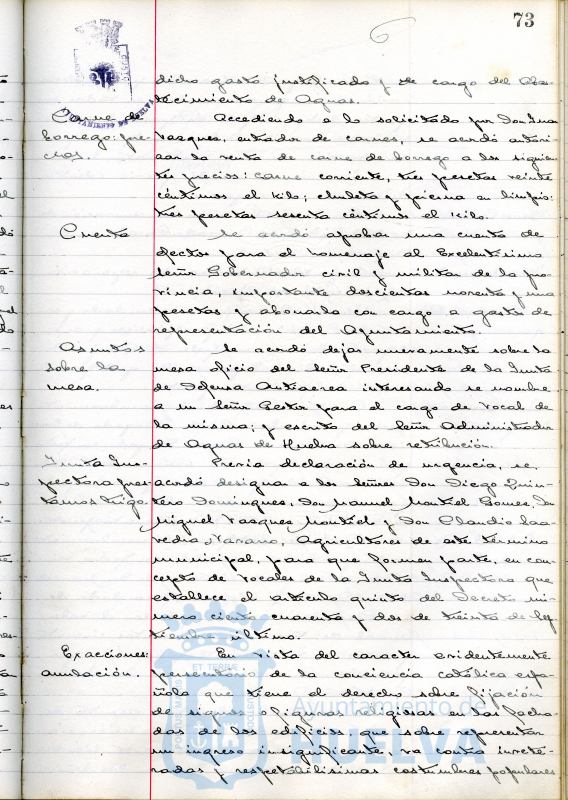 73
dicho gasto justificado y de cargo del Abas-
tecimiento de Aguas.
Carne de
borrego: pre-
cios.
Accediendo a lo solicitado por Don Juan
Vasques, entrador de carnes, se acordó autori-
zar la venta de carne de borrego a los siguien-
tes precios: carne corriente, tres pesetas veinte
céntimos el kilo; chuleta y pierna en limpio:
tres pesetas sesenta céntimos el kilo.
Cuenta
Se acordó aprobar una cuenta de
efectos para el homenaje al Excelentísimo
Señor Gobernador civil y militar de la pro-
vincia, importante doscientas noventa y una
pesetas y abonarla con cargo a gastos de
representación del Ayuntamiento.
Asuntos
sobre la
mesa.
Se acordó dejar nuevamente sobre la
mesa oficio del Señor Presidente de la Junta
de Defensa Antiaerea interesando se nombre
a un Señor Gestor para el cargo de Vocal de
la misma; y escrito del Señor Administrador
de Aguas de Huelva sobre retribución.
Junta Ins-
pectora pres-
tamos trigo
Previa declaración de urgencia, se
acordó designar a los señores Don Diego Quin-
tero Domingues, Don Manuel Montiel Gomes, Don
Miguel Vasques Montiel y Don Claudio Saa-
vedra Navarro, Agricultores de este término
municipal, para que formen parte, en con-
cepto de Vocales de la Junta Inspectora que
establece el artículo quinto del Decreto nú-
mero ciento cuarenta y dos de treinta de Sep-
tiembre último.
Exacciones:
anulación.
En vista del caracter evidentemente
persecutorio de la conciencia católica espa-
ñola que tiene el derecho sobre fijación
de signos o figuras religiosas en las facha-
das de los edificios, que sobre representar
un ingreso insignificante, va contra invete-
radas y respetabilisimas costumbres populares
AYUNTAMIENTO DE HUELVA
PORTUS MARIS ET TERRE CUSTODIA
Ayuntamiento de
HUELVA